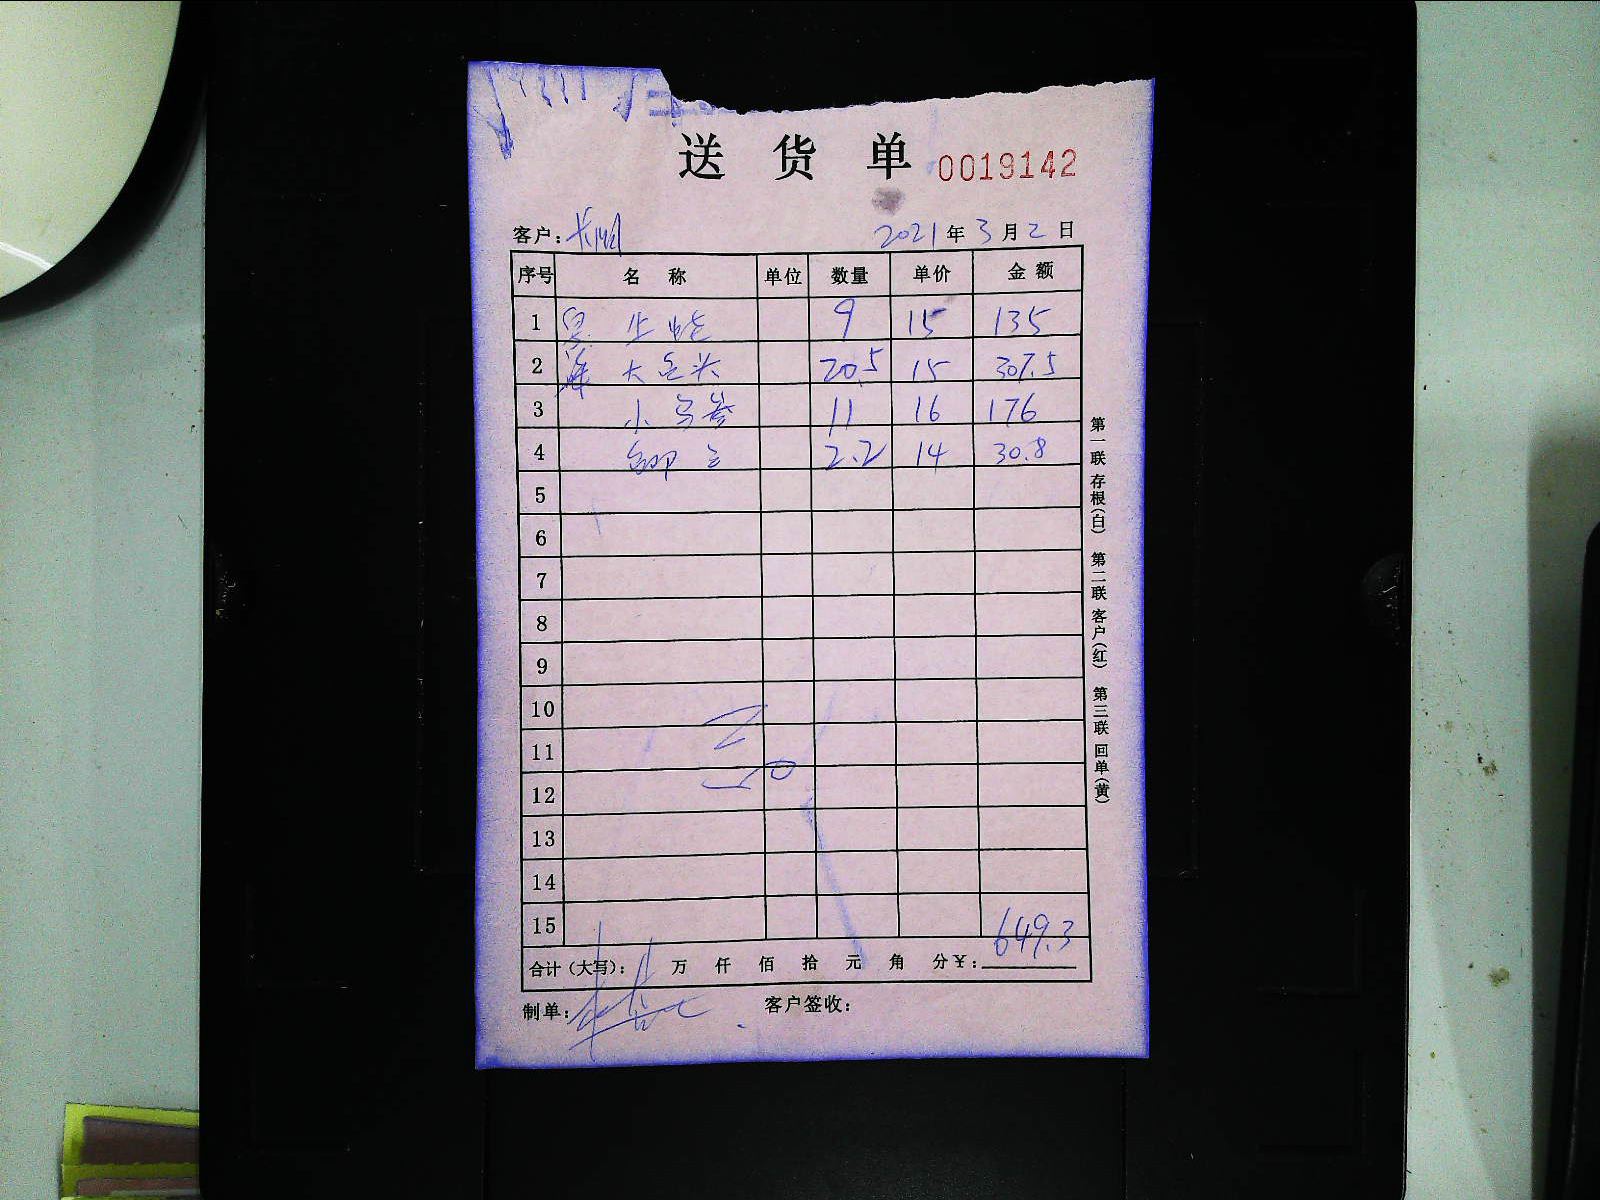 送 货 单 0019142
客户: 2021年3月2日
序号 名 称 单位 数量 单价 金 额
1 9 15 135
2 大 头 20.5 15 307.5
3 小 11 16 176
4 2.2 14 30.8
5
6
7
8
9
10
11
12
13
14
15 649.3
合计(大写): 万 仟 佰 拾 元 角 分¥:
制单: 客户签收:
第一联 存根(白) 第二联 客户(红) 第三联 回单(黄)